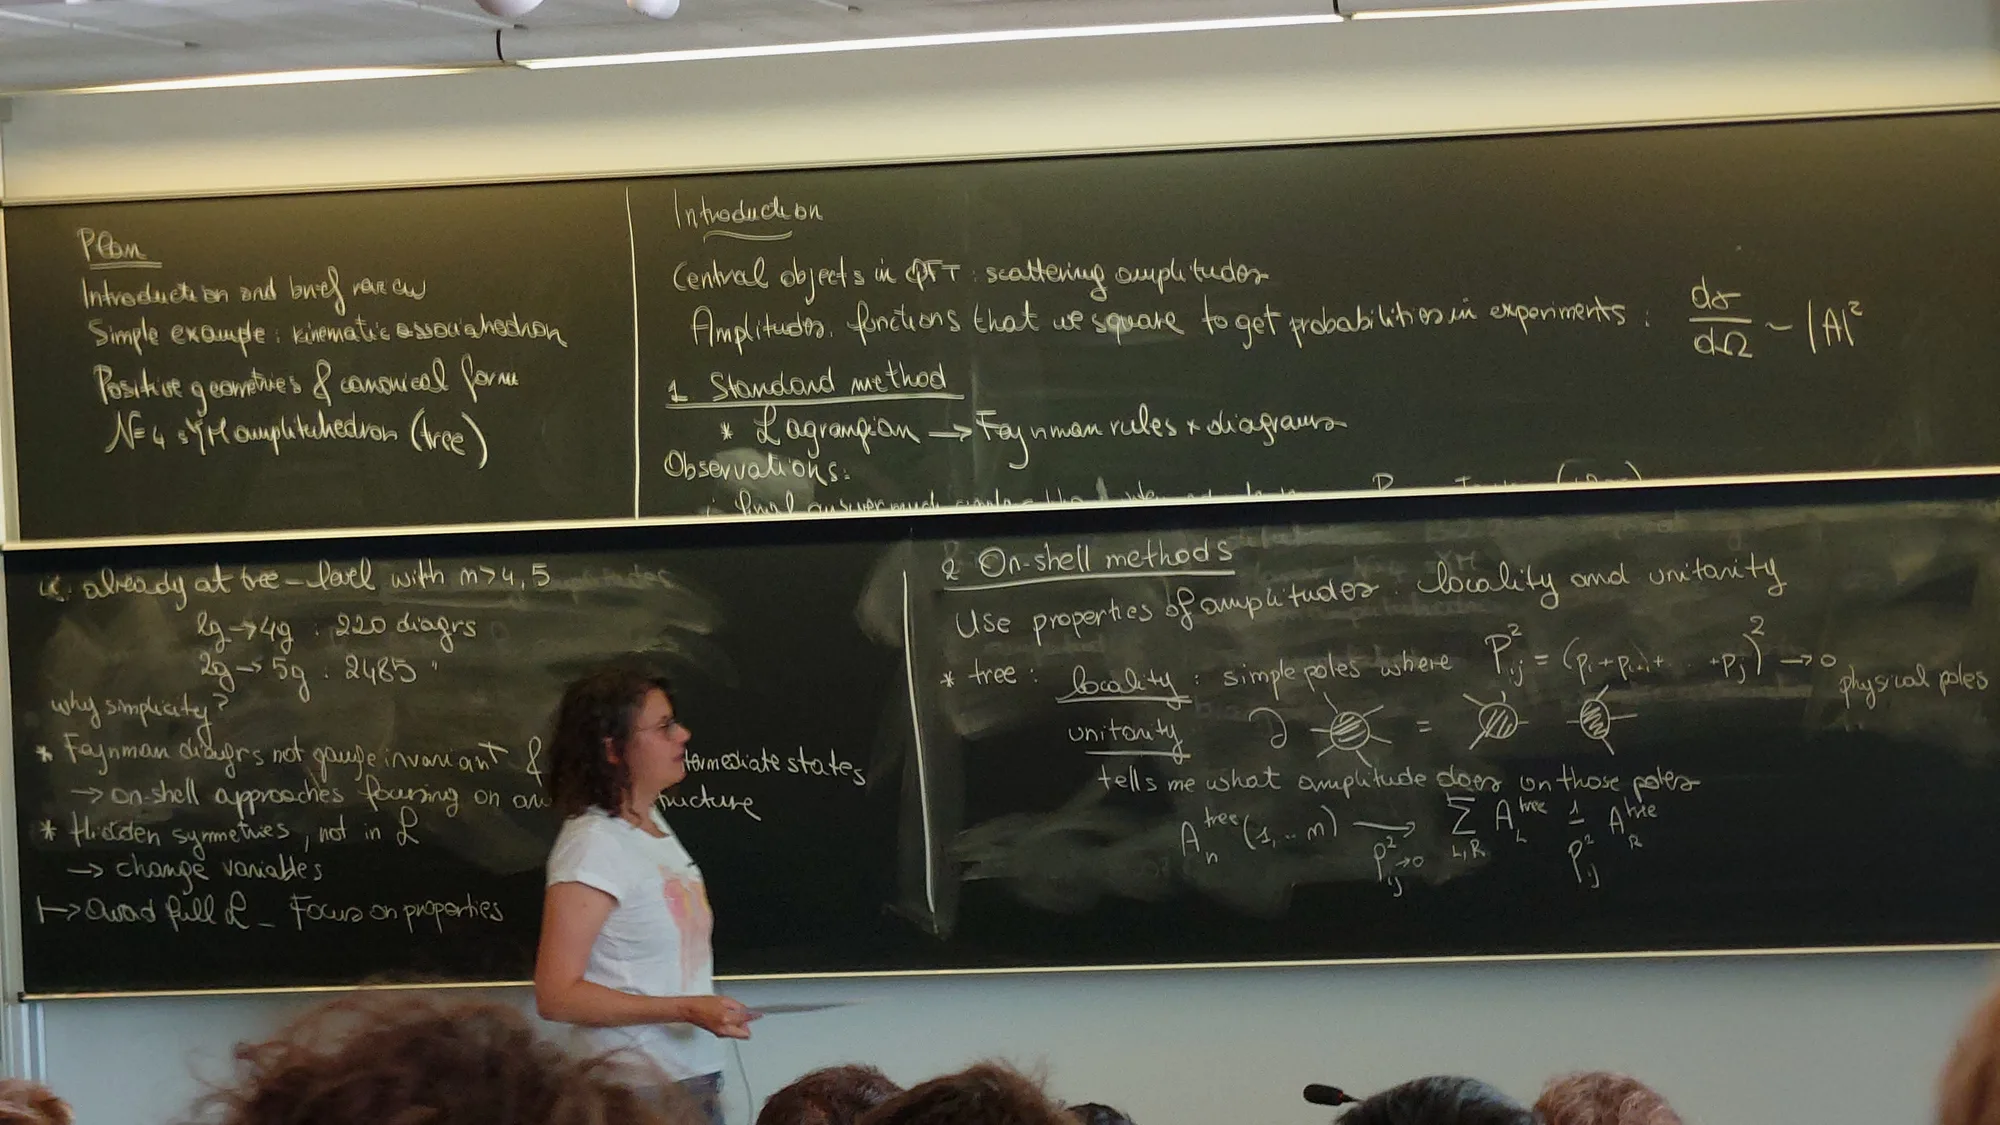 Plan
Introduction and brief review
Simple example: kinematic associahedron
Positive geometries & canonical forms
N=4 sYM amplituhedron (tree)
Introduction
Central objects in QFT: scattering amplitudes
Amplitudes: functions that we square to get probabilities in experiments: dσ/dΩ ~ |A|²
1. Standard method
* Lagrangian → Feynman rules + diagrams
Observations:
final answer much
already at tree-level with n>4,5
2g→4g : 220 diagrs
2g→5g : 2485 "
why simplicity?
* Feynman diagrs not gauge invariant & termediate states
→ on-shell approaches focusing on ructure
* Hidden symmetries, not in L
→ change variables
↦ Avoid full L – Focus on properties
2 On-shell methods
Use properties of amplitudes: locality and unitarity
* tree: locality: simple poles where P²ij = (pi + pi+1 + ... + pj)² → 0 physical poles
unitarity ∂ =
tells me what amplitude does on those poles
A_n^tree (1,..n) → P²ij→0 Σ L,R A_L^tree 1/P²ij A_R^tree